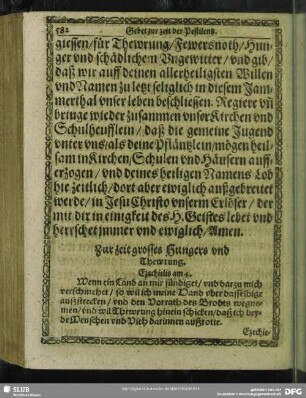 582 Gebet zur zeit der Pestilentz.
giessen/für Thewrung/Fewersnoth/Hun-
ger vnd schädlichem Vngewitter/vnd gib/
daß wir auff deinen allerheiligsten Willen
vnd Namen zu letzt seliglich in diesem Jam-
merthal vnser leben beschliessen. Regiere vñ
bringe wieder zusammen vnser Kirchen vnd
Schulheufflein/daß die gemeine Jugend
vnter vns/als deine Pfläntzlein/mögen heil-
sam in Kirchen/Schulen vnd Häusern auff-
erzogen/vnd deines heiligen Namens Lob
hie zeitlich/dort aber ewiglich außgebreitet
werde/in Jesu Christo vnserm Erlöser/der
mit dir in einigkeit des H. Geistes lebet vnd
herrschet immer vnd ewiglich/Amen.
Zur zeit grosses Hungers vnd
Thewrung.
Ezechielis am 4.
Wenn ein Land an mir sündiget/vnd darzu mich
verschmehet/so wil ich meine Hand vber dasselbige
außstrecken/vnd den Vorrath des Brodts wegne-
men/vnd wil Thewrung hinein schicken/daß ich bey-
de Menschen vnd Vieh darinnen außrotte.
Ezechie-
SLUB
Wir führen Wissen.
DFG